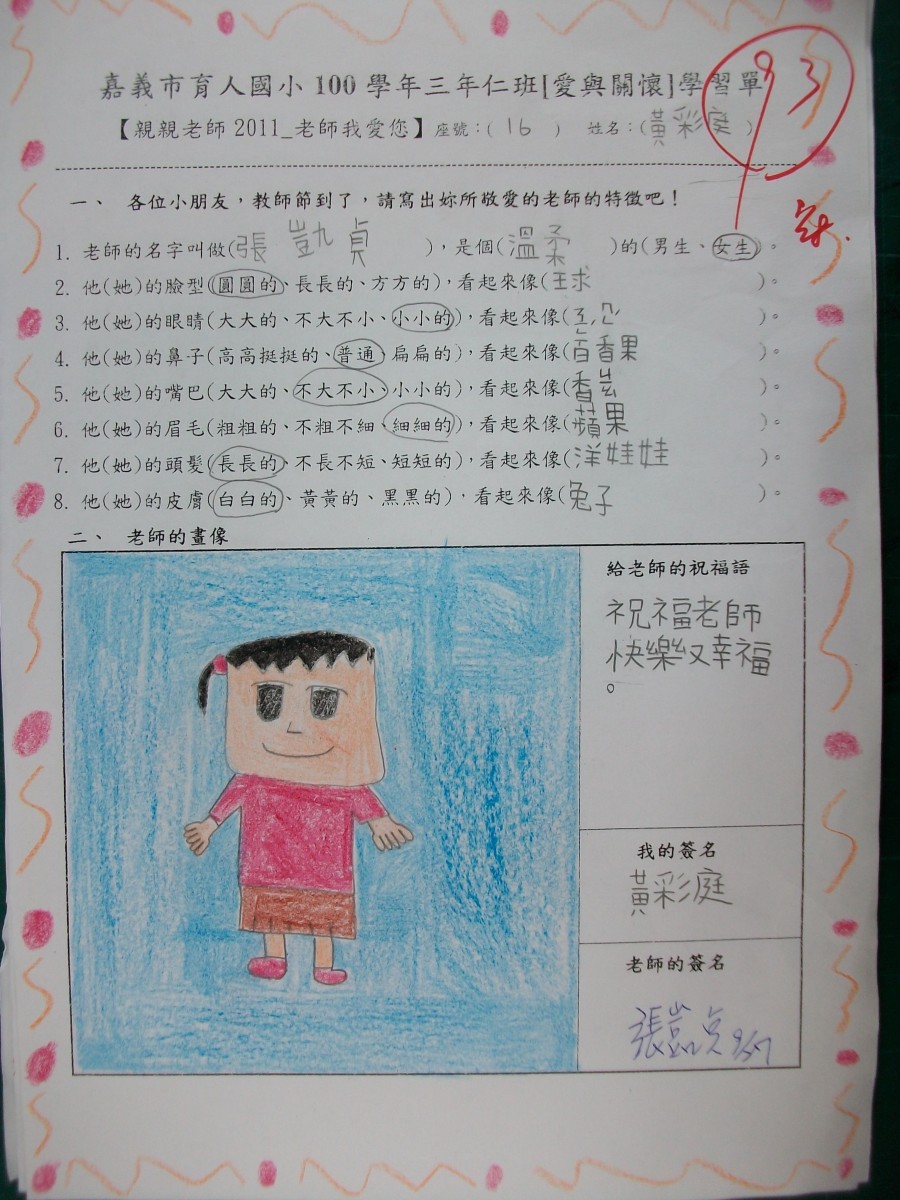 嘉義市育人國小100學年三年仁班[愛與關懷]學習單
93
【親親老師2011_老師我愛您】座號:( 16 ) 姓名:(黃彩庭 )
一、 各位小朋友,教師節到了,請寫出妳所敬愛的老師的特徵吧!
1. 老師的名字叫做(張凱貞 ),是個(溫柔 )的(男生、女生)。
2. 他(她)的臉型(圓圓的、長長的、方方的),看起來像(球 )。
3. 他(她)的眼睛(大大的、不大不小、小小的),看起來像( )。
4. 他(她)的鼻子(高高挺挺的、普通、扁扁的),看起來像(百香果 )。
5. 他(她)的嘴巴(大大的、不大不小、小小的),看起來像(香 )。
6. 他(她)的眉毛(粗粗的、不粗不細、細細的),看起來像(蘋果 )。
7. 他(她)的頭髮(長長的、不長不短、短短的),看起來像(洋娃娃 )。
8. 他(她)的皮膚(白白的、黃黃的、黑黑的),看起來像(兔子 )。
二、 老師的畫像
給老師的祝福語
祝福老師
快樂ㄡ幸福
。
我的簽名
黃彩庭
老師的簽名
張凱貞 9/27